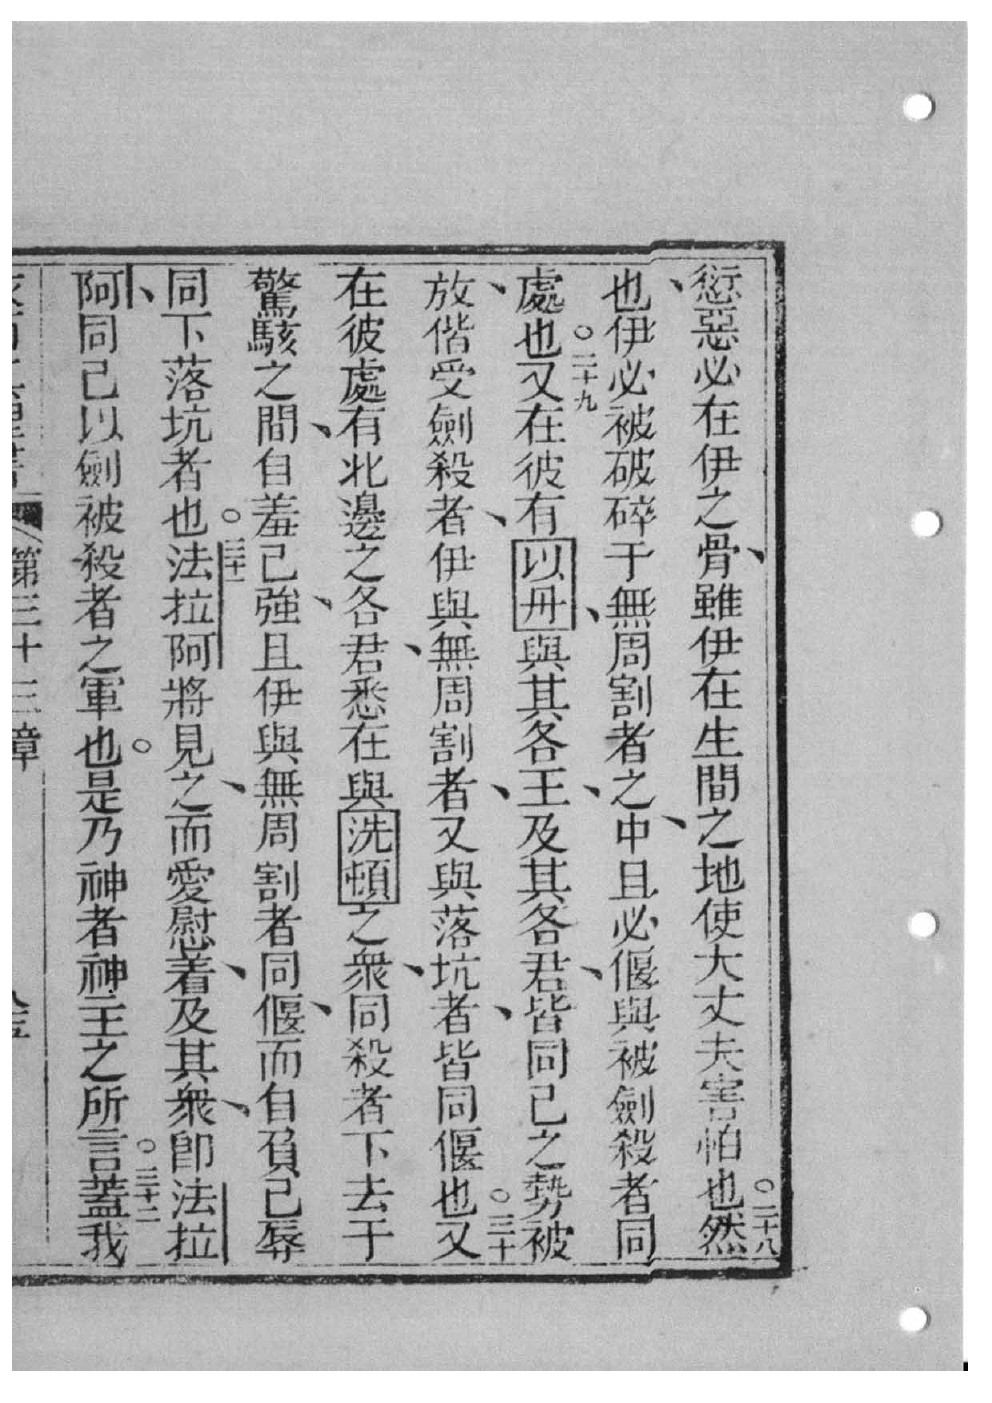 愆惡必在伊之骨、雖伊在生間之地、使大丈夫害怕也○二十八然
也、伊必被破碎于無周割者之中、且必偃與被劍殺者同
處也○二十九又在彼有以丹、與其各王、及其各君、皆同己之勢被
放、偕受劍殺者、伊與無周割者、又與落坑者、皆同偃也○三十又
在彼處有北邊之各君、悉在與洗頓之衆、同殺者下去于
驚駭之間、自羞己強、且伊與無周割者同偃、而自負己辱
同下落坑者也○三十一法拉阿將見之、而愛慰着、及其衆、卽法拉
阿、同己以劍被殺者之軍也○是乃神者神主之所言○三十二蓋我
第三十三章